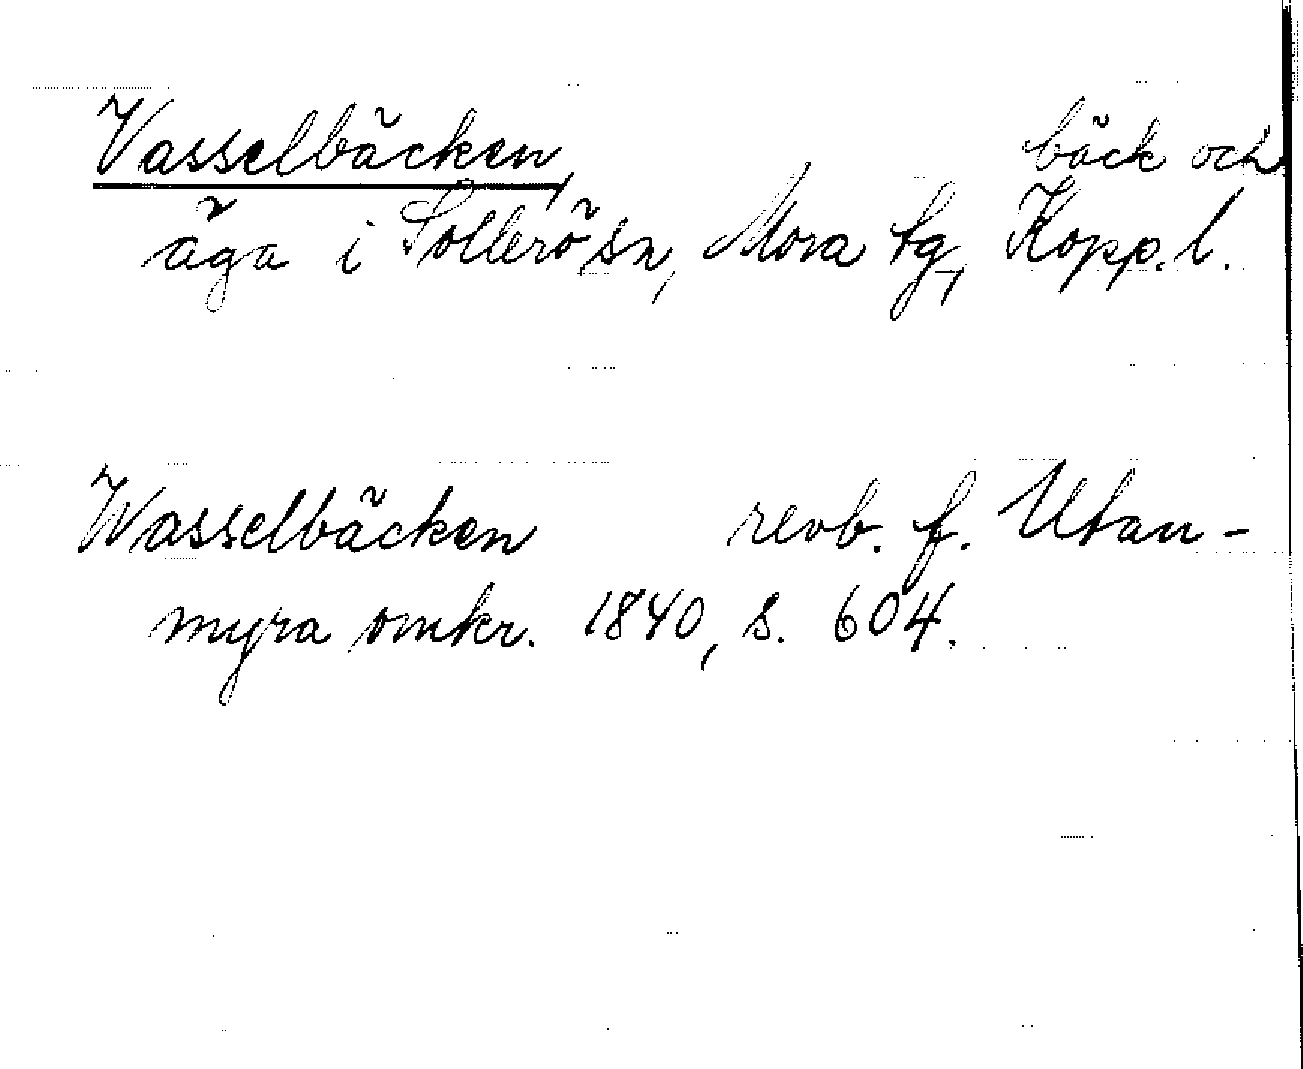 Vasselbäcken, bäck och
äga i Sollerö sn, Mora tg, Kopp. l.
Wasselbäcken revb. f. Utan-
myra omkr. 1840, s. 604.